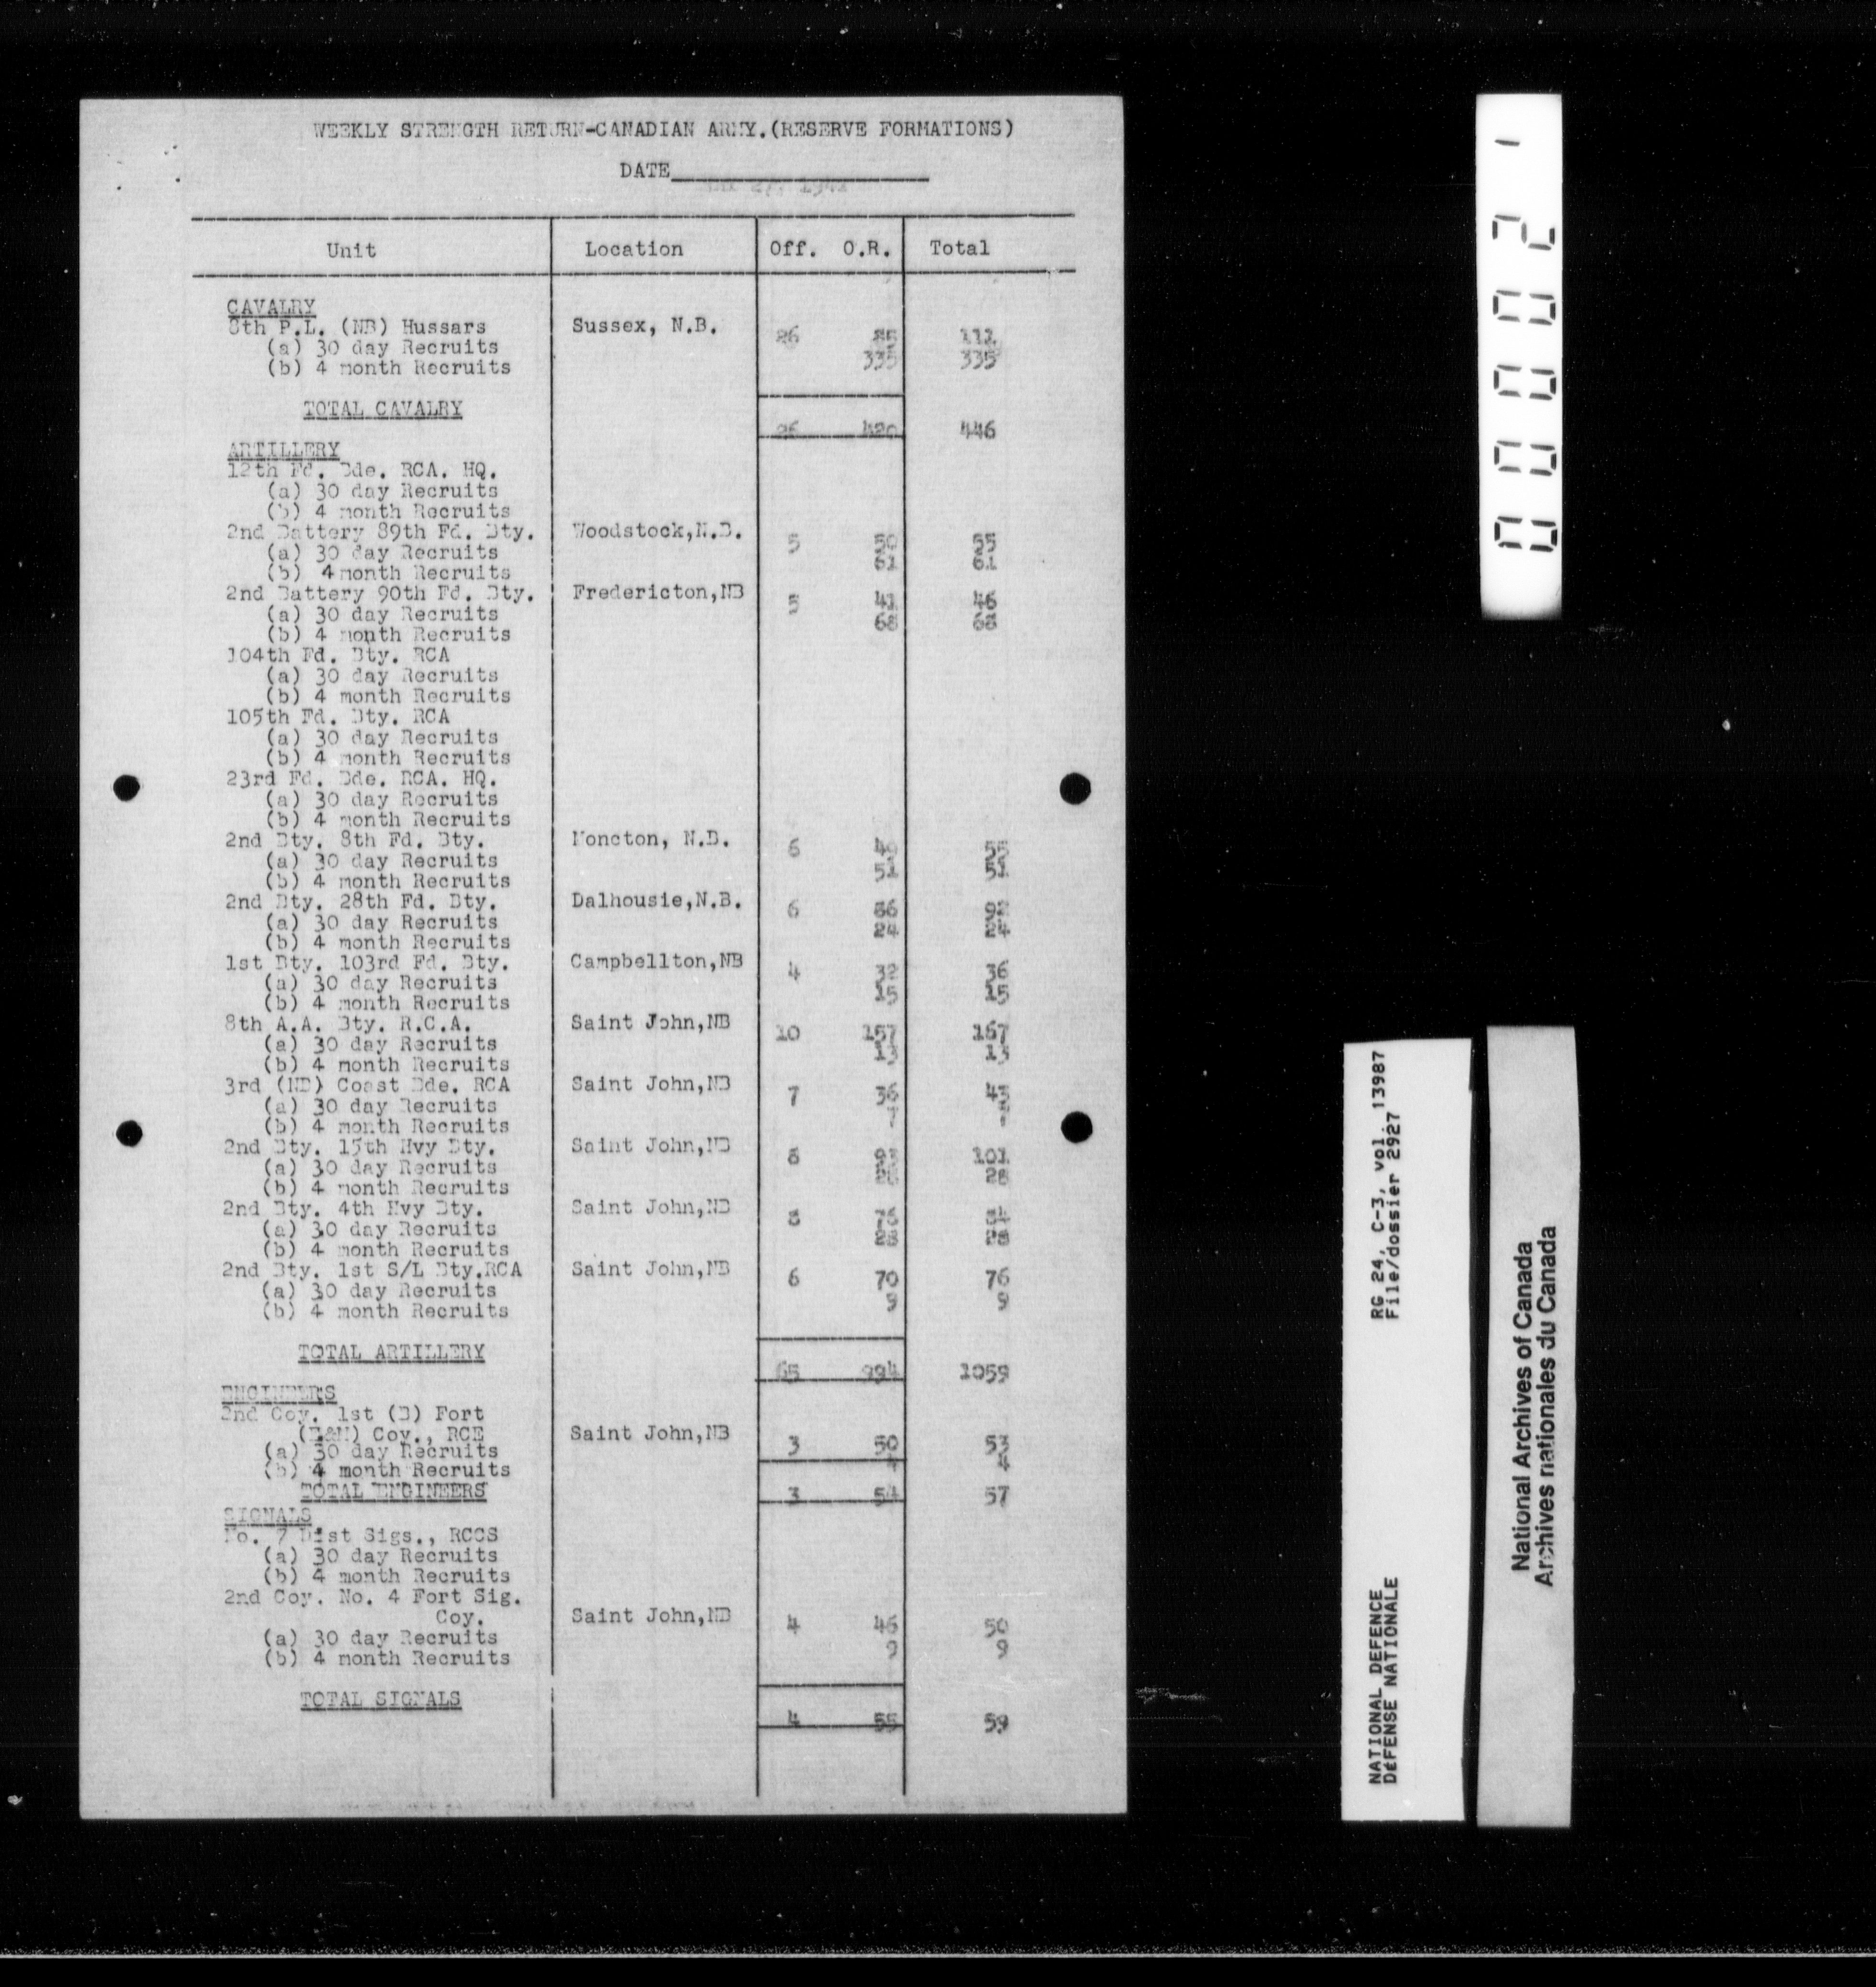 WEEKLY STRENGTH RETURN-CANADIAN ARMY.(RESERVE FORMATIONS)
DATE
Unit Location Off. O.R. Total
CAVALRY
8th P.L. (NB) Hussars Sussex, N.B. 26 112
(a) 30 day Recruits 335 335
(b) 4 month Recruits
TOTAL CAVALRY
26 420 446
ARTILLERY
12th Fd. Bde. RCA. HQ.
(a) 30 day Recruits
(b) 4 month Recruits
2nd Battery 89th Fd. Bty. Woodstock,N.B. 5
(a) 30 day Recruits
(b) 4 month Recruits
2nd Battery 90th Fd. Bty. Fredericton,NB
(a) 30 day Recruits
(b) 4 month Recruits
104th Fd. Bty. RCA
(a) 30 day Recruits
(b) 4 month Recruits
105th Fd. Bty. RCA
(a) 30 day Recruits
(b) 4 month Recruits
23rd Fd. Bde. RCA. HQ.
(a) 30 day Recruits
(b) 4 month Recruits
2nd Bty. 8th Fd. Bty. Moncton, N.B. 6
(a) 30 day Recruits
(b) 4 month Recruits
2nd Bty. 28th Fd. Bty. Dalhousie,N.B. 6
(a) 30 day Recruits
(b) 4 month Recruits
1st Bty. 103rd Fd. Bty. Campbellton,NB 4
(a) 30 day Recruits
(b) 4 month Recruits
8th A.A. Bty. R.C.A. Saint John,NB 10 157 167
(a) 30 day Recruits
(b) 4 month Recruits
3rd (NB) Coast Bde. RCA Saint John,NB 7 36
(a) 30 day Recruits
(b) 4 month Recruits
2nd Bty. 15th Hvy Bty. Saint John,NB 8 101
(a) 30 day Recruits 28
(b) 4 month Recruits
2nd Bty. 4th Hvy Bty. Saint John,NB 8
(a) 30 day Recruits
(b) 4 month Recruits
2nd Bty. 1st S/L Bty.RCA Saint John,NB 6 70 76
(a) 30 day Recruits 9 9
(b) 4 month Recruits
TOTAL ARTILLERY
65 994 1059
ENGINEERS
2nd Coy. 1st (B) Fort
(E&M) Coy., RCE Saint John,NB 3 50 53
(a) 30 day Recruits 4 4
(b) 4 month Recruits
TOTAL ENGINEERS 3 54 57
SIGNALS
No. 7 Dist Sigs., RCCS
(a) 30 day Recruits
(b) 4 month Recruits
2nd Coy. No. 4 Fort Sig.
Coy. Saint John,NB 4 46 50
(a) 30 day Recruits 9 9
(b) 4 month Recruits
TOTAL SIGNALS
4 55 59
000021
NATIONAL DEFENCE RG 24, C-3, vol. 13987
DÉFENSE NATIONALE File/dossier 2927
National Archives of Canada
Archives nationales du Canada